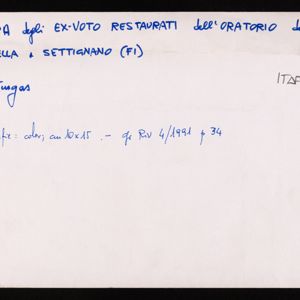 A degli EX-VOTO RESTAURATI dell'ORATORIO de
ELLA a SETTIGNANO (FI)
ITAF
Fusgas
fic: color; cm 10x15. - ge Riv 4/1991 p 34